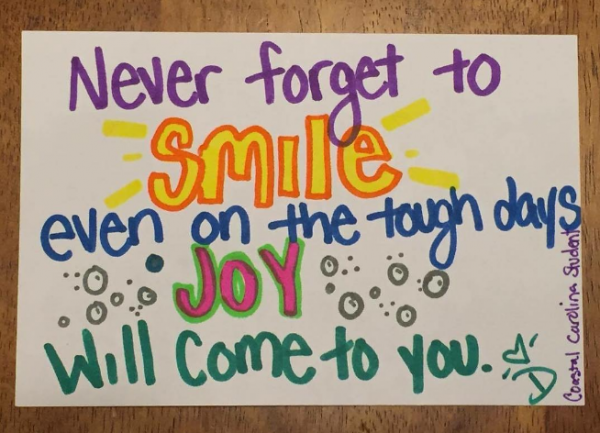 Never forget to
SMILE
even on the tough days
JOY
Will Come to you.
Coastal Carolina Student